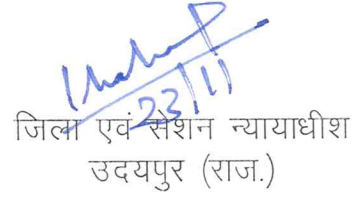 23/11
जिला एवं सेशन न्यायाधीश
उदयपुर (राज.)